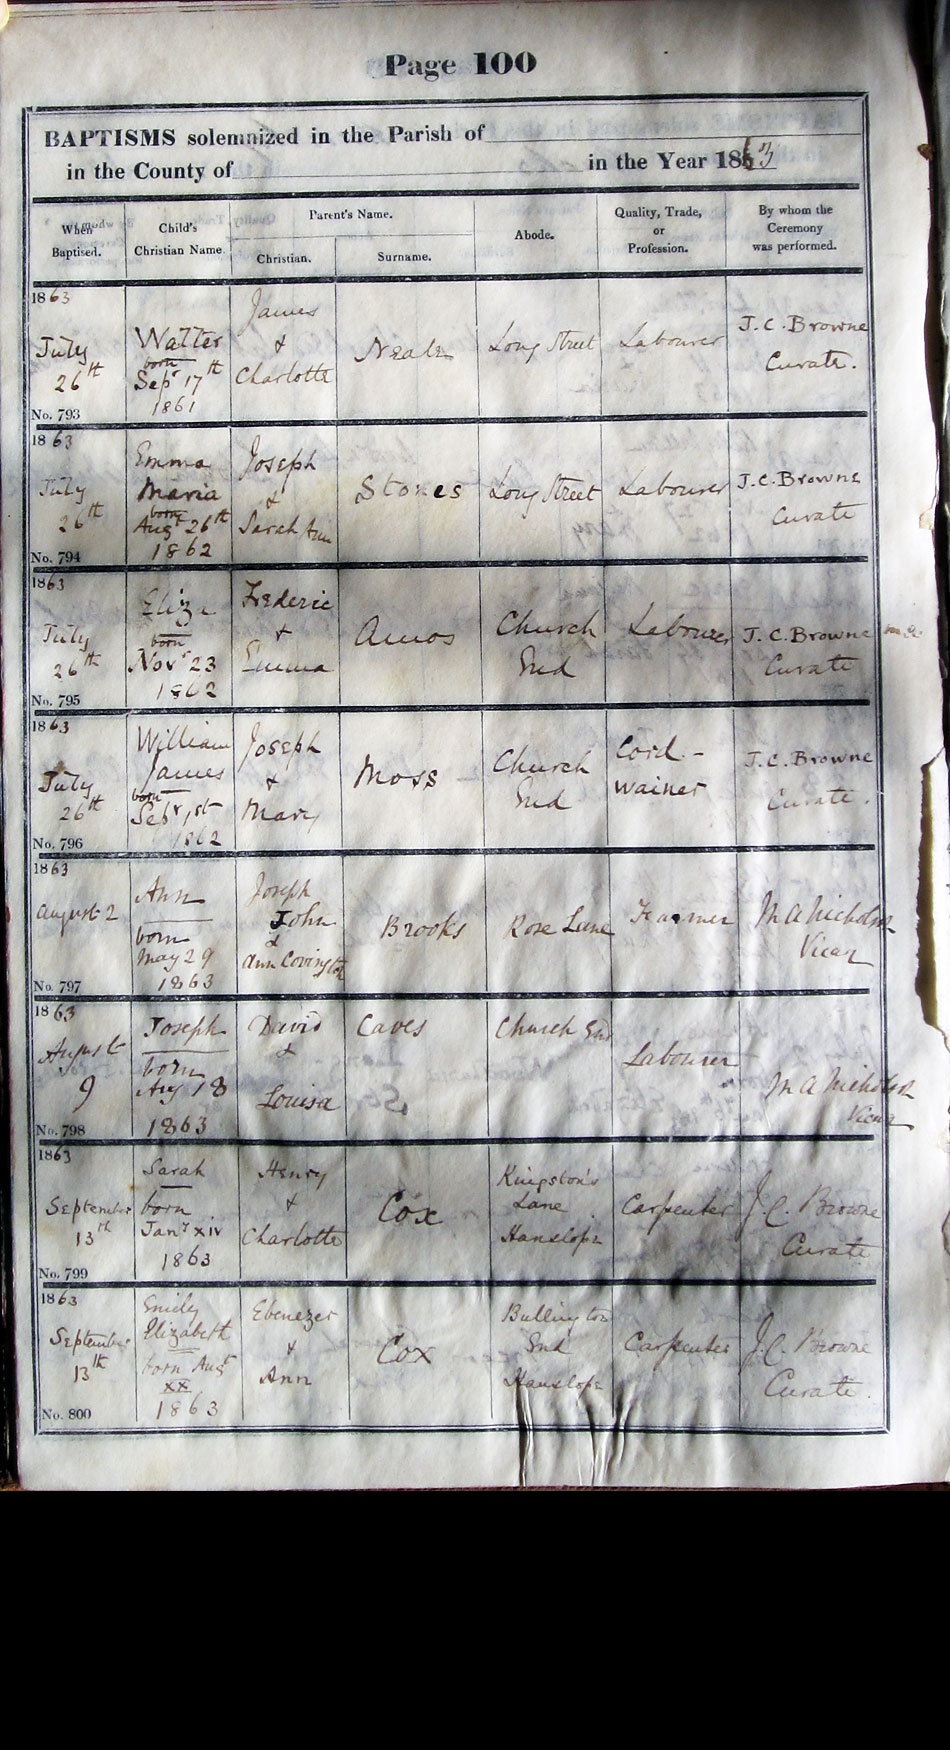 Page 100
BAPTISMS solemnized in the Parish of
in the County of in the Year 1863
When Baptised.
Child's Christian Name.
Parent's Name.
Christian.
Surname.
Abode.
Quality, Trade, or Profession.
By whom the Ceremony was performed.
1863
July
26th
No. 793
Walter
born
Sepr 17th
1861
James
&
Charlotte
Neale
Long Street
Labourer
J. C. Browne
Curate.
1863
July
26th
No. 794
Emma
Maria
born
Augt 26th
1862
Joseph
&
Sarah Ann
Stones
Long Street
Labourer
J. C. Browne
Curate
1863
July
26th
No. 795
Eliza
born
Novr 23
1862
Frederic
&
Emma
Amos
Church
End
Labourer
J. C. Browne
Curate
1863
July
26th
No. 796
William
James
born
Sepr 1st
1862
Joseph
&
Mary
Moss
Church
End
Cord-
wainer
J. C. Browne
Curate.
1863
August 2
No. 797
Ann
born
May 29
1863
Joseph
John
&
Ann Covington
Brooks
Rose Lane
Farmer
M A Nicholson
Vicar
1863
August
9
No. 798
Joseph
born
Aug 18
1863
David
&
Louisa
Caves
Church End
Labourer
M A Nicholson
Vicar
1863
September
13th
No. 799
Sarah
born
Jany xiv
1863
Henry
&
Charlotte
Cox
Kingston's
Lane
Hanslope
Carpenter
J. C. Browne
Curate
1863
September
13th
No. 800
Emily
Elizabeth
born Augt
xx
1863
Ebenezer
&
Ann
Cox
Bullington
End
Hanslope
Carpenter
J. C. Browne
Curate.